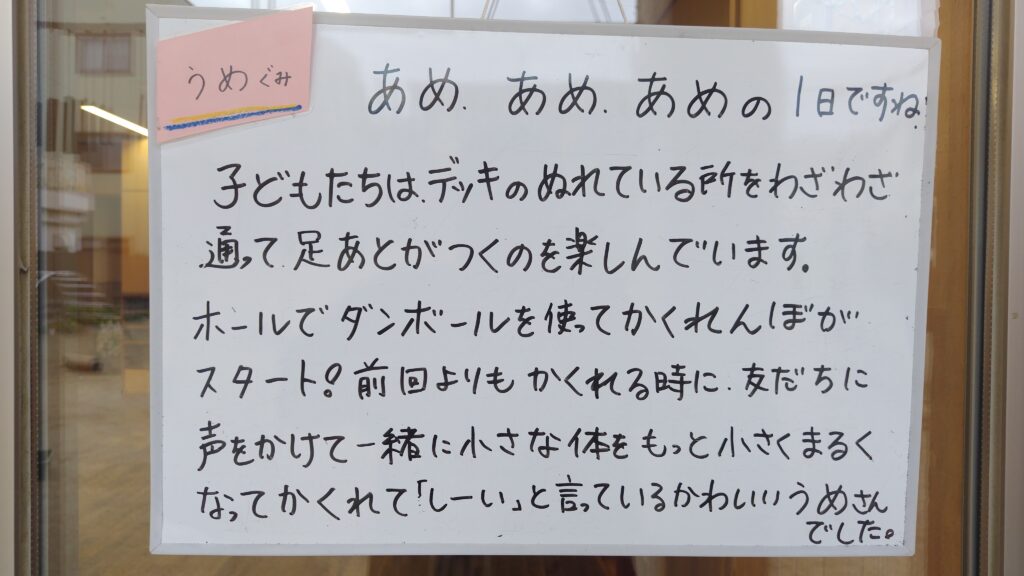 うめぐみ
あめ. あめ. あめの 1日ですね.
子どもたちは.デッキのぬれている所をわざわざ
通って足あとがつくのを楽しんでいます。
ホールでダンボールを使ってかくれんぼが
スタート!前回よりもかくれる時に.友だちに
声をかけて一緒に小さな体をもっと小さくまるく
なってかくれて「しーい」と言っているかわいいうめさん
でした。